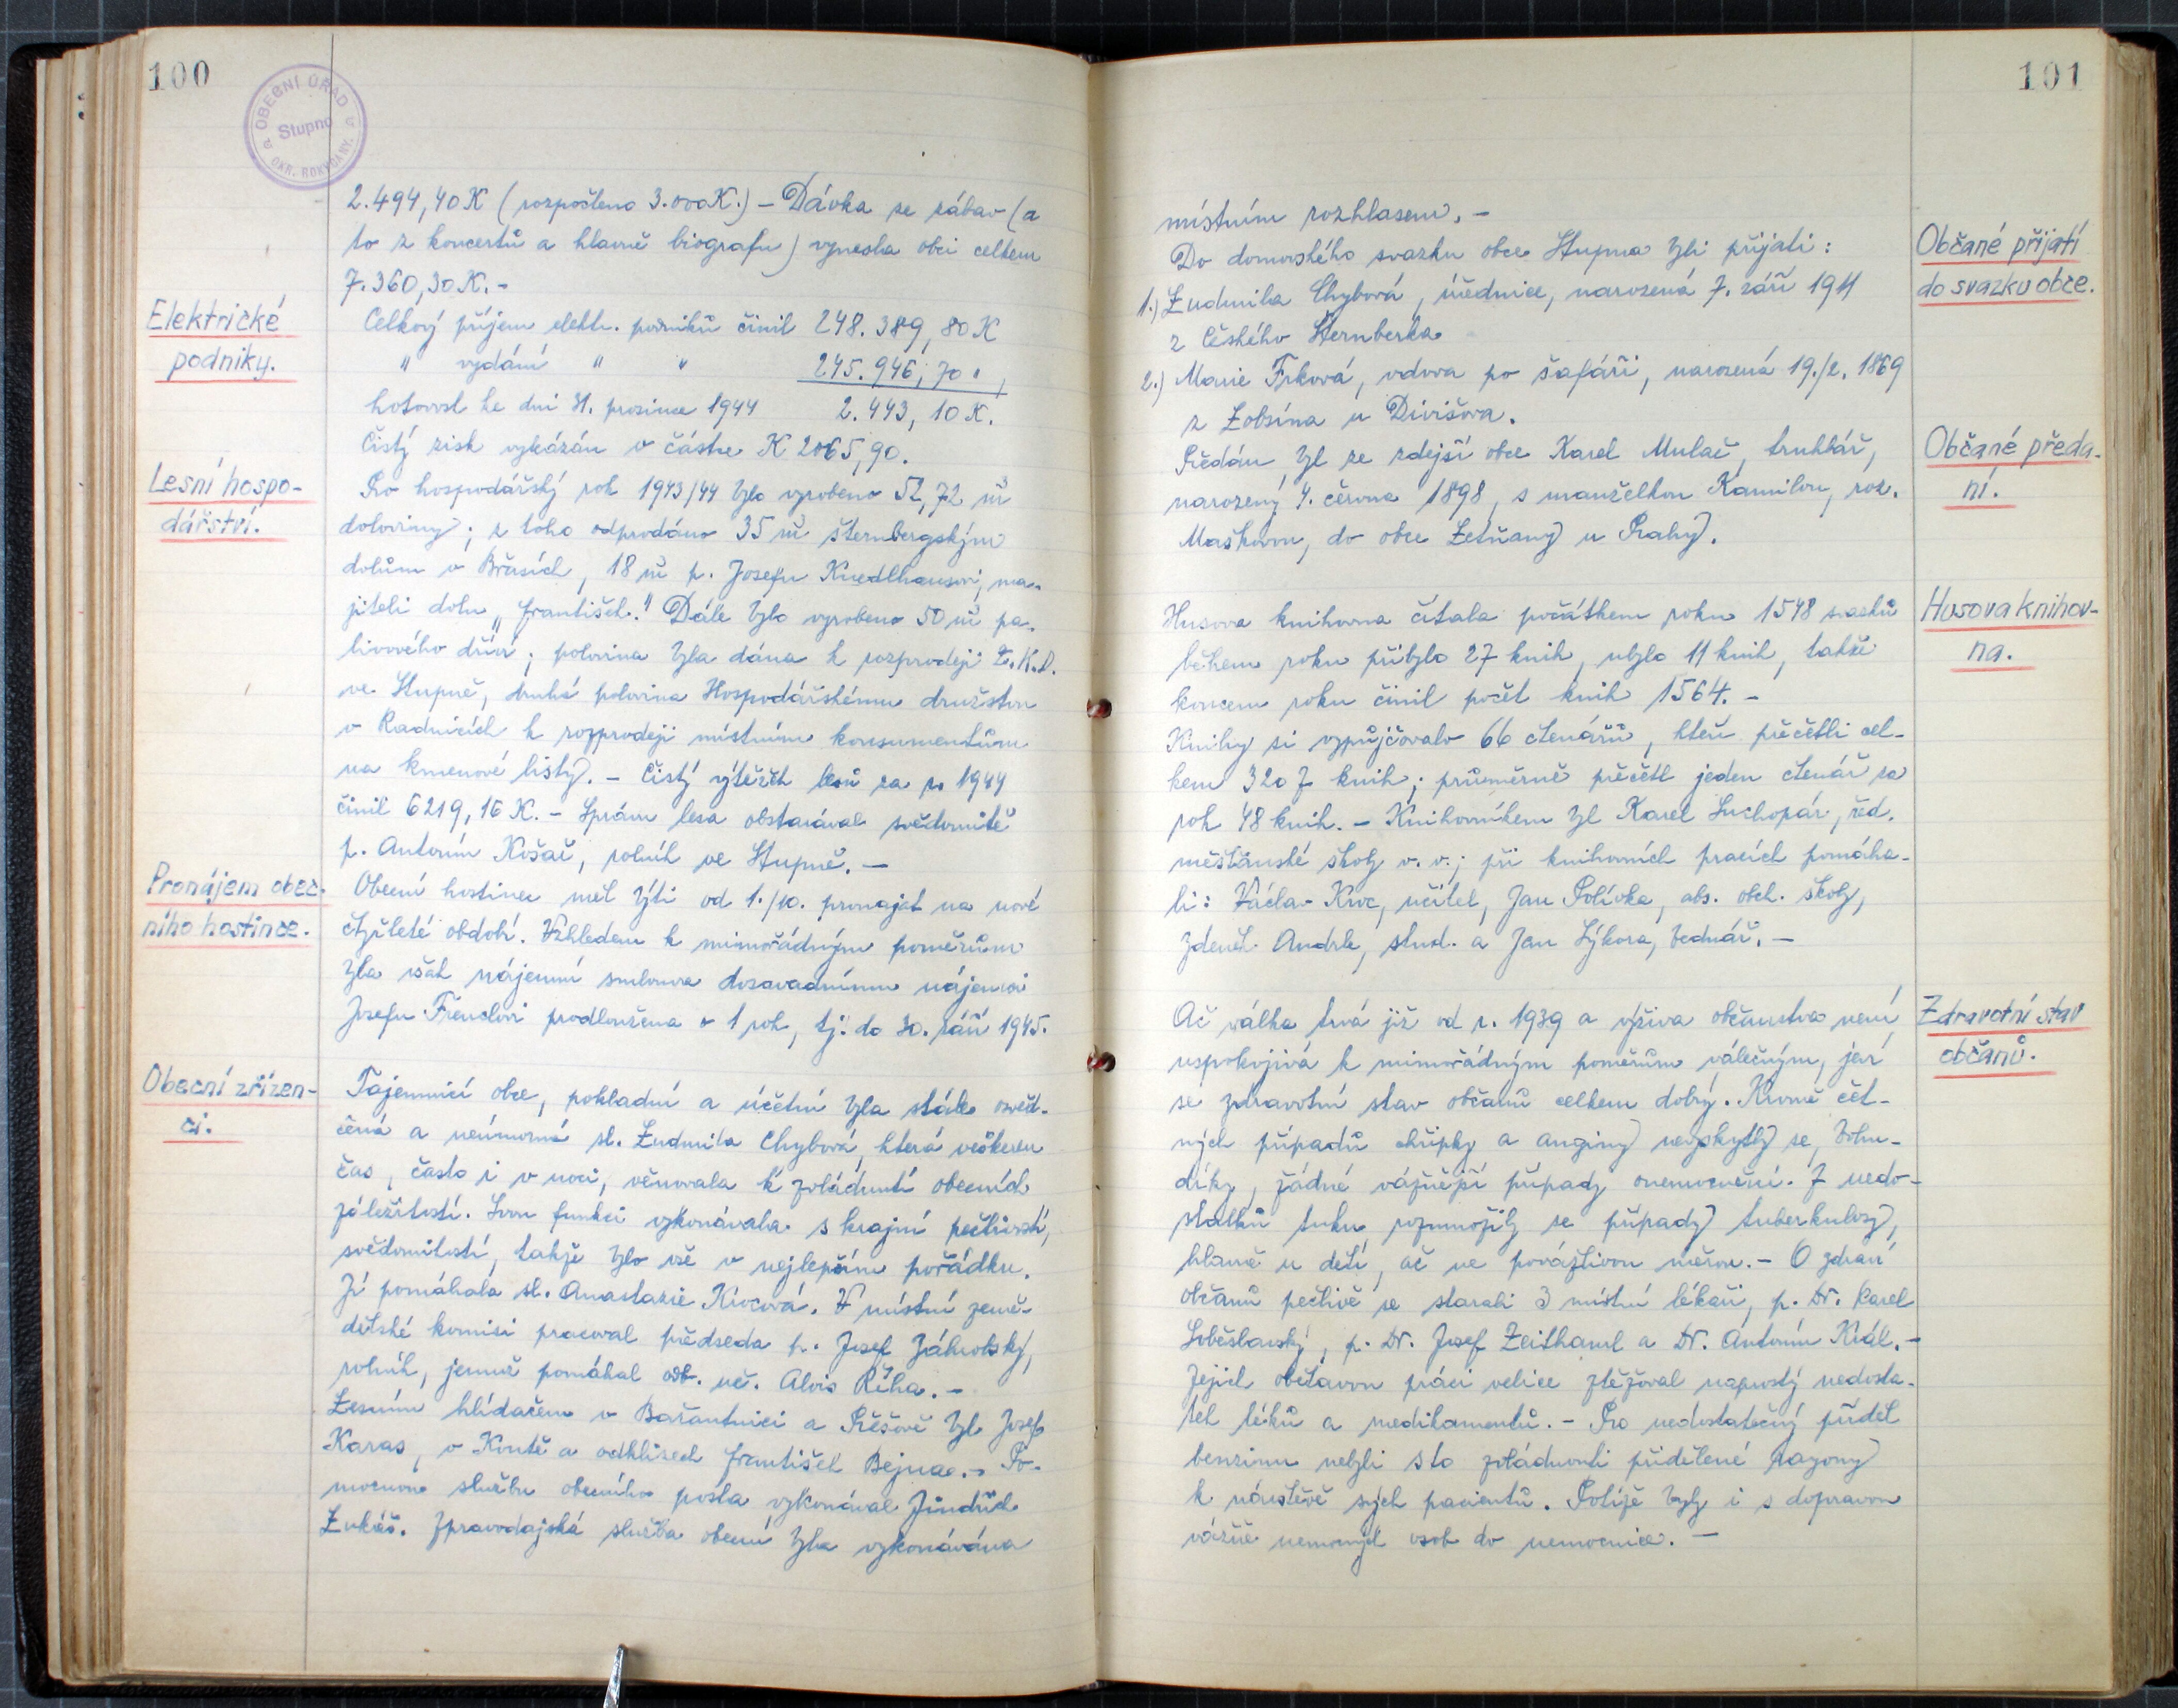 100
OBECNÍ ÚŘAD
Stupno
OKR. ROKYCANY.
2.494,40 K (rozpočteno 3.000 K.) – Dávka ze zábav (a
to z koncertů a hlavně biografu) vynesla obci celkem
7.360,30 K. –
Elektrické
podniky.
Celkový příjem elektr. podniků činil 248.389,80 K
" vydání " " 245.946,70 "
hotovost ke dni 31. prosince 1944 2.443,10 K.
Čistý zisk vykázán v částce K 2065,90.
Lesní hospo-
dářství.
Pro hospodářský rok 1943/44 bylo vyrobeno 52,72 m³
doloviny; z toho odprodáno 35 m³ šternbergským
dolům v Břasích, 18 m³ p. Josefu Knedlhansovi, ma-
jiteli dolu „František." Dále bylo vyrobeno 50 m³ pa-
livového dříví; polovina byla dána k rozprodeji Ž.K.D.
ve Stupně, druhá polovina Hospodářskému družstvu
v Radnicích k rozprodeji místním konsumentům
na kmenové listy. – Čistý výtěžek lesů za r. 1944
činil 6219,16 K. – Správu lesa obstarával svědomitě
p. Antonín Košař, rolník ve Stupně. –
Pronájem obec-
ního hostince.
Obecní hostinec měl býti od 1./10. pronajat na nové
čtyřleté období. Vzhledem k mimořádným poměrům
byla však nájemní smlouva dosavadnímu nájemci
Josefu Frenclovi prodloužena o 1 rok, tj. do 30. září 1945.
Obecní zřízen-
ci.
Tajemnicí obce, pokladní a účetní byla stále osvěd-
čená a neúmorná sl. Ludmila Chybová, která veškeren
čas, často i v noci, věnovala k zvládnutí obecních
záležitostí. Svou funkci vykonávala s krajní pečlivostí,
svědomitostí, takže bylo vše v nejlepším pořádku.
Jí pomáhala sl. Anastazie Krocová. V místní země-
dělské komisi pracoval předseda p. Josef Záhrobský,
rolník, jemuž pomáhal odb. uč. Alois Říha. –
Lesním hlídačem v Bažantnici a Příšově byl Josef
Karas, v Kontě a odklizech František Bejvac. – Po-
mocnou službu obecního posla vykonával Jindřich
Lukáš. Zpravodajská služba obecní byla vykonávána
101
místním rozhlasem. –
Občané přijatí
do svazku obce.
Do domovského svazku obce Stupna byli přijati:
1.) Ludmila Chybová, úřednice, narozená 7. září 1911
z Českého Šternberka
2.) Marie Frková, vdova po šafáři, narozená 19./2. 1869
z Lobsína u Divišova.
Občané předa-
ní.
Předán byl ze zdejší obce Karel Mulač, truhlář,
narozený 4. června 1898, s manželkou Kamilou, roz.
Maškovou, do obce Letňany u Prahy.
Husova knihov-
na.
Husova knihovna čítala počátkem roku 1548 svazků
během roku přibylo 27 knih, ubylo 11 knih, takže
koncem roku činil počet knih 1564. –
Knihy si vypůjčovalo 66 čtenářů, kteří přečetli cel-
kem 3207 knih; průměrně přečetl jeden čtenář za
rok 48 knih. – Knihovníkem byl Karel Suchopár, řed.
měšťanské školy v. v.; při knihovních pracích pomáha-
li: Václav Kroc, učitel, Jan Polívka, abs. obch. školy,
Zdeněk Andrle, stud. a Jan Sýkora, bednář. –
Zdravotní stav
občanů.
Ač válka trvá již od r. 1939 a výživa občanstva není
uspokojivá k mimořádným poměrům válečným, jeví
se zdravotní stav občanů celkem dobrý. Kromě čet-
ných případů chřipky a anginy nevyskytly se, bohu-
díky, žádné vážnější případy onemocnění. Z nedo-
statku tuku rozmnožily se případy tuberkulosy,
hlavně u dětí, ač ne povážlivou měrou. – O zdraví
občanů pečlivě se starali 3 místní lékaři, p. Dr. Karel
Soběslavský, p. Dr. Josef Zeithaml a Dr. Antonín Král. –
Jejich obětavou práci velice ztěžoval naprostý nedosta-
tek léků a medikamentů. – Pro nedostatečný příděl
benzinu nebyli s to zvládnouti přidělené rayony
k návštěvě svých pacientů. Potíže byly i s dopravou
vážně nemocných osob do nemocnice. –